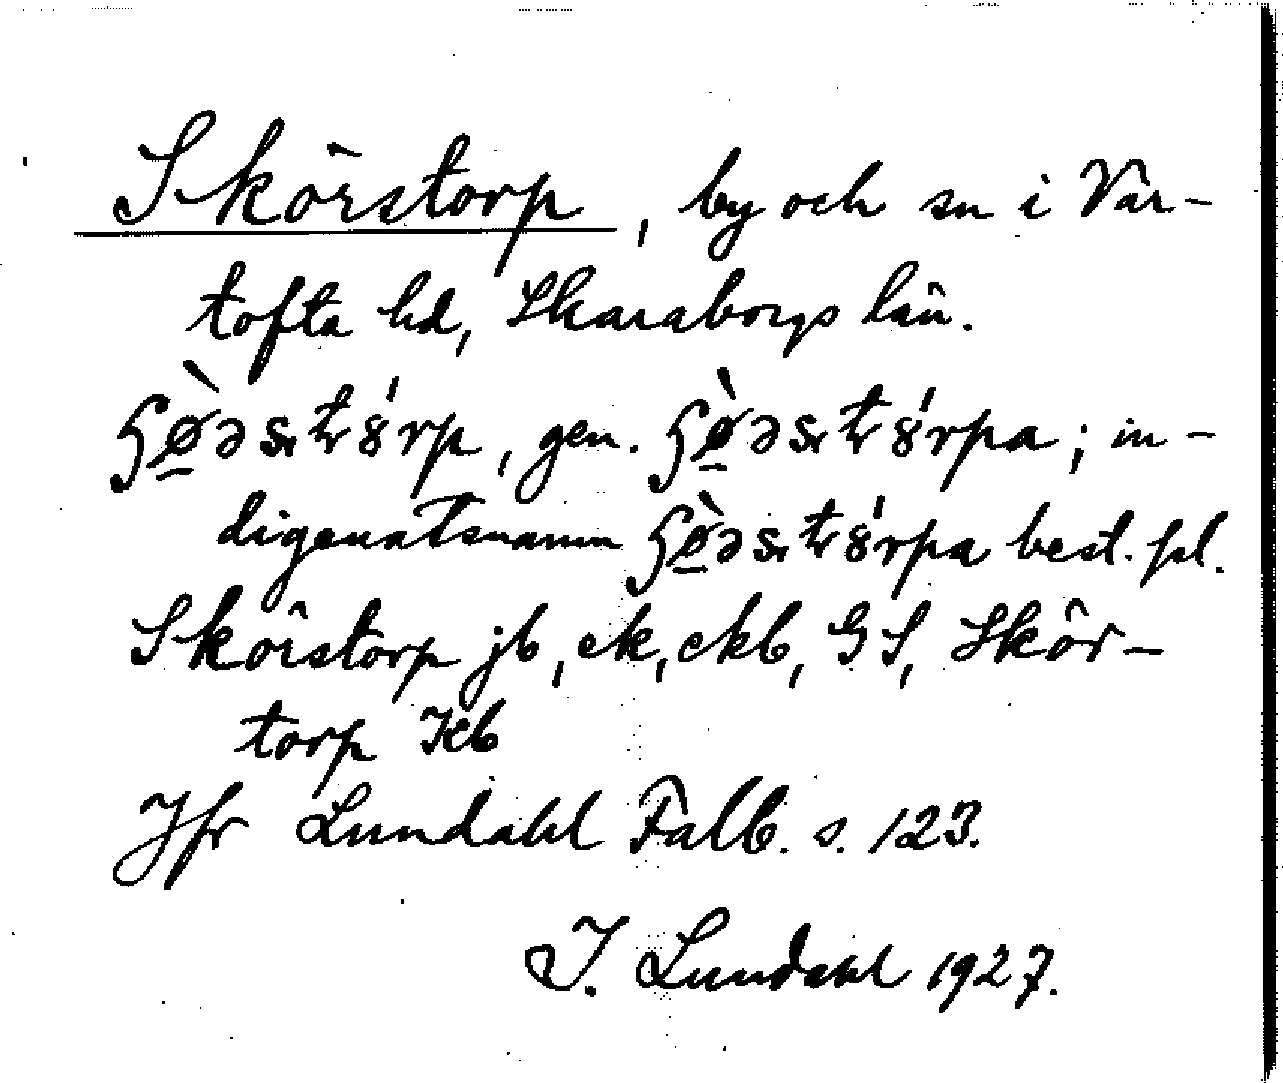 Skörstorp, by och sn i Var-
tofta hd, Skaraborgs län.
gen. ; in-
digenatsnamn best. pl.
Skörstorp jb, ek, ekb, GS, Skör-
torp Kb
Jfr Lundahl Falb. s. 123.
I. Lundahl 1927.